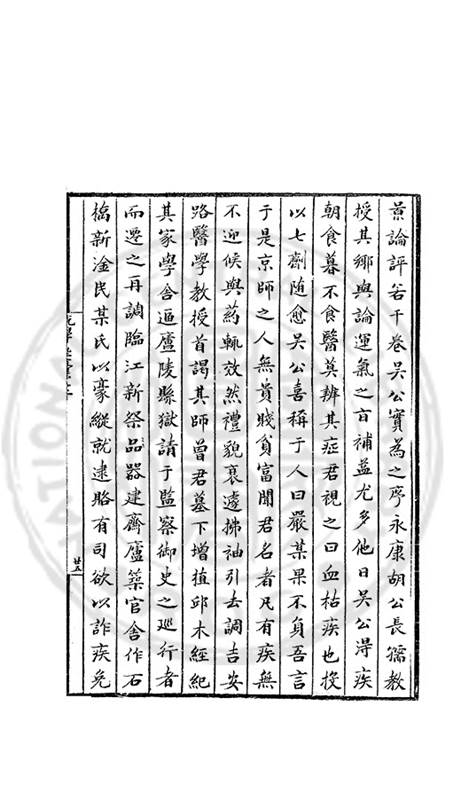 景論評若干卷吳公實為之序永康胡公長孺教
授其鄉與論運氣之旨補益尤多他日吳公淂疾
朝食暮不食醫莫辨其症君視之曰血枯疾也投
以七劑随愈吳公喜稱于人曰嚴某果不負吾言
于是京師之人無貴賤貧富聞君名者凡有疾無
不迎候與葯輒效然禮貌衰遽拂袖引去調吉安
路醫學教授首謁其師曾君墓下增植邱木經紀
其家學舍逼廬陵縣獄請于監察御史之廵行者
而遷之再調臨江新祭品器建齋廬築官舍作石
槁新淦民某氏以豪縱就逮賂有司欲以詐疾免
廿五